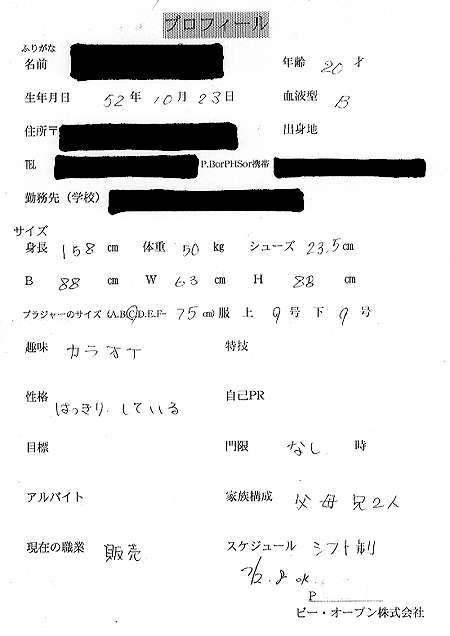 プロフィール
ふりがな
名前 年齢 20 才
生年月日 52 年 10 月 23 日 血液型 B
住所〒 出身地
TEL P.BorPHSor携帯
勤務先（学校）
サイズ
身長 158 cm 体重 50 kg シューズ 23.5 cm
B 88 cm W 63 cm H 88 cm
ブラジャーのサイズ（A.B.C.D.E.F- 75 cm）服 上 9 号 下 9 号
趣味 カラオケ 特技
性格 はっきりしている 自己PR
目標 門限 なし 時
アルバイト 家族構成 父 母 兄2人
現在の職業 販売 スケジュール シフト制
7/2.8 OK
P
ビー・オープン株式会社